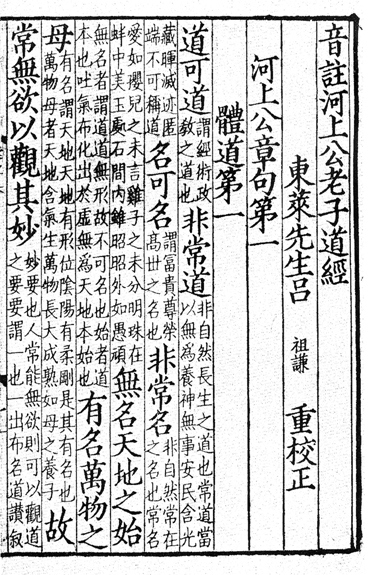 音註河上公老子道經
東萊先生呂 祖謙 重校正
河上公章句第一
體道第一
道可道 謂經術政教之道也 非常道 非自然長生之道也常道當以無爲養神無事安民含光
藏暉滅迹匿端不可稱道 名可名 謂富貴尊榮髙丗之名也 非常名 非自然常在之名也常名
愛如嬰兒之未言雞子之未分明珠在蚌中美玉處石間內雖昭昭外如愚頑 無名天地之始
無名者謂道道無形故不可名也始者道本也吐氣布化出於虛無爲天地本始也 有名萬物之
母 有名謂天地天地有形位陰陽有柔剛是其有名也萬物母者天地含氣生萬物長大成熟如母之養子 故
常無欲以觀其妙 妙要也人常能無欲則可以觀道之要要謂 也出布名道讚叙